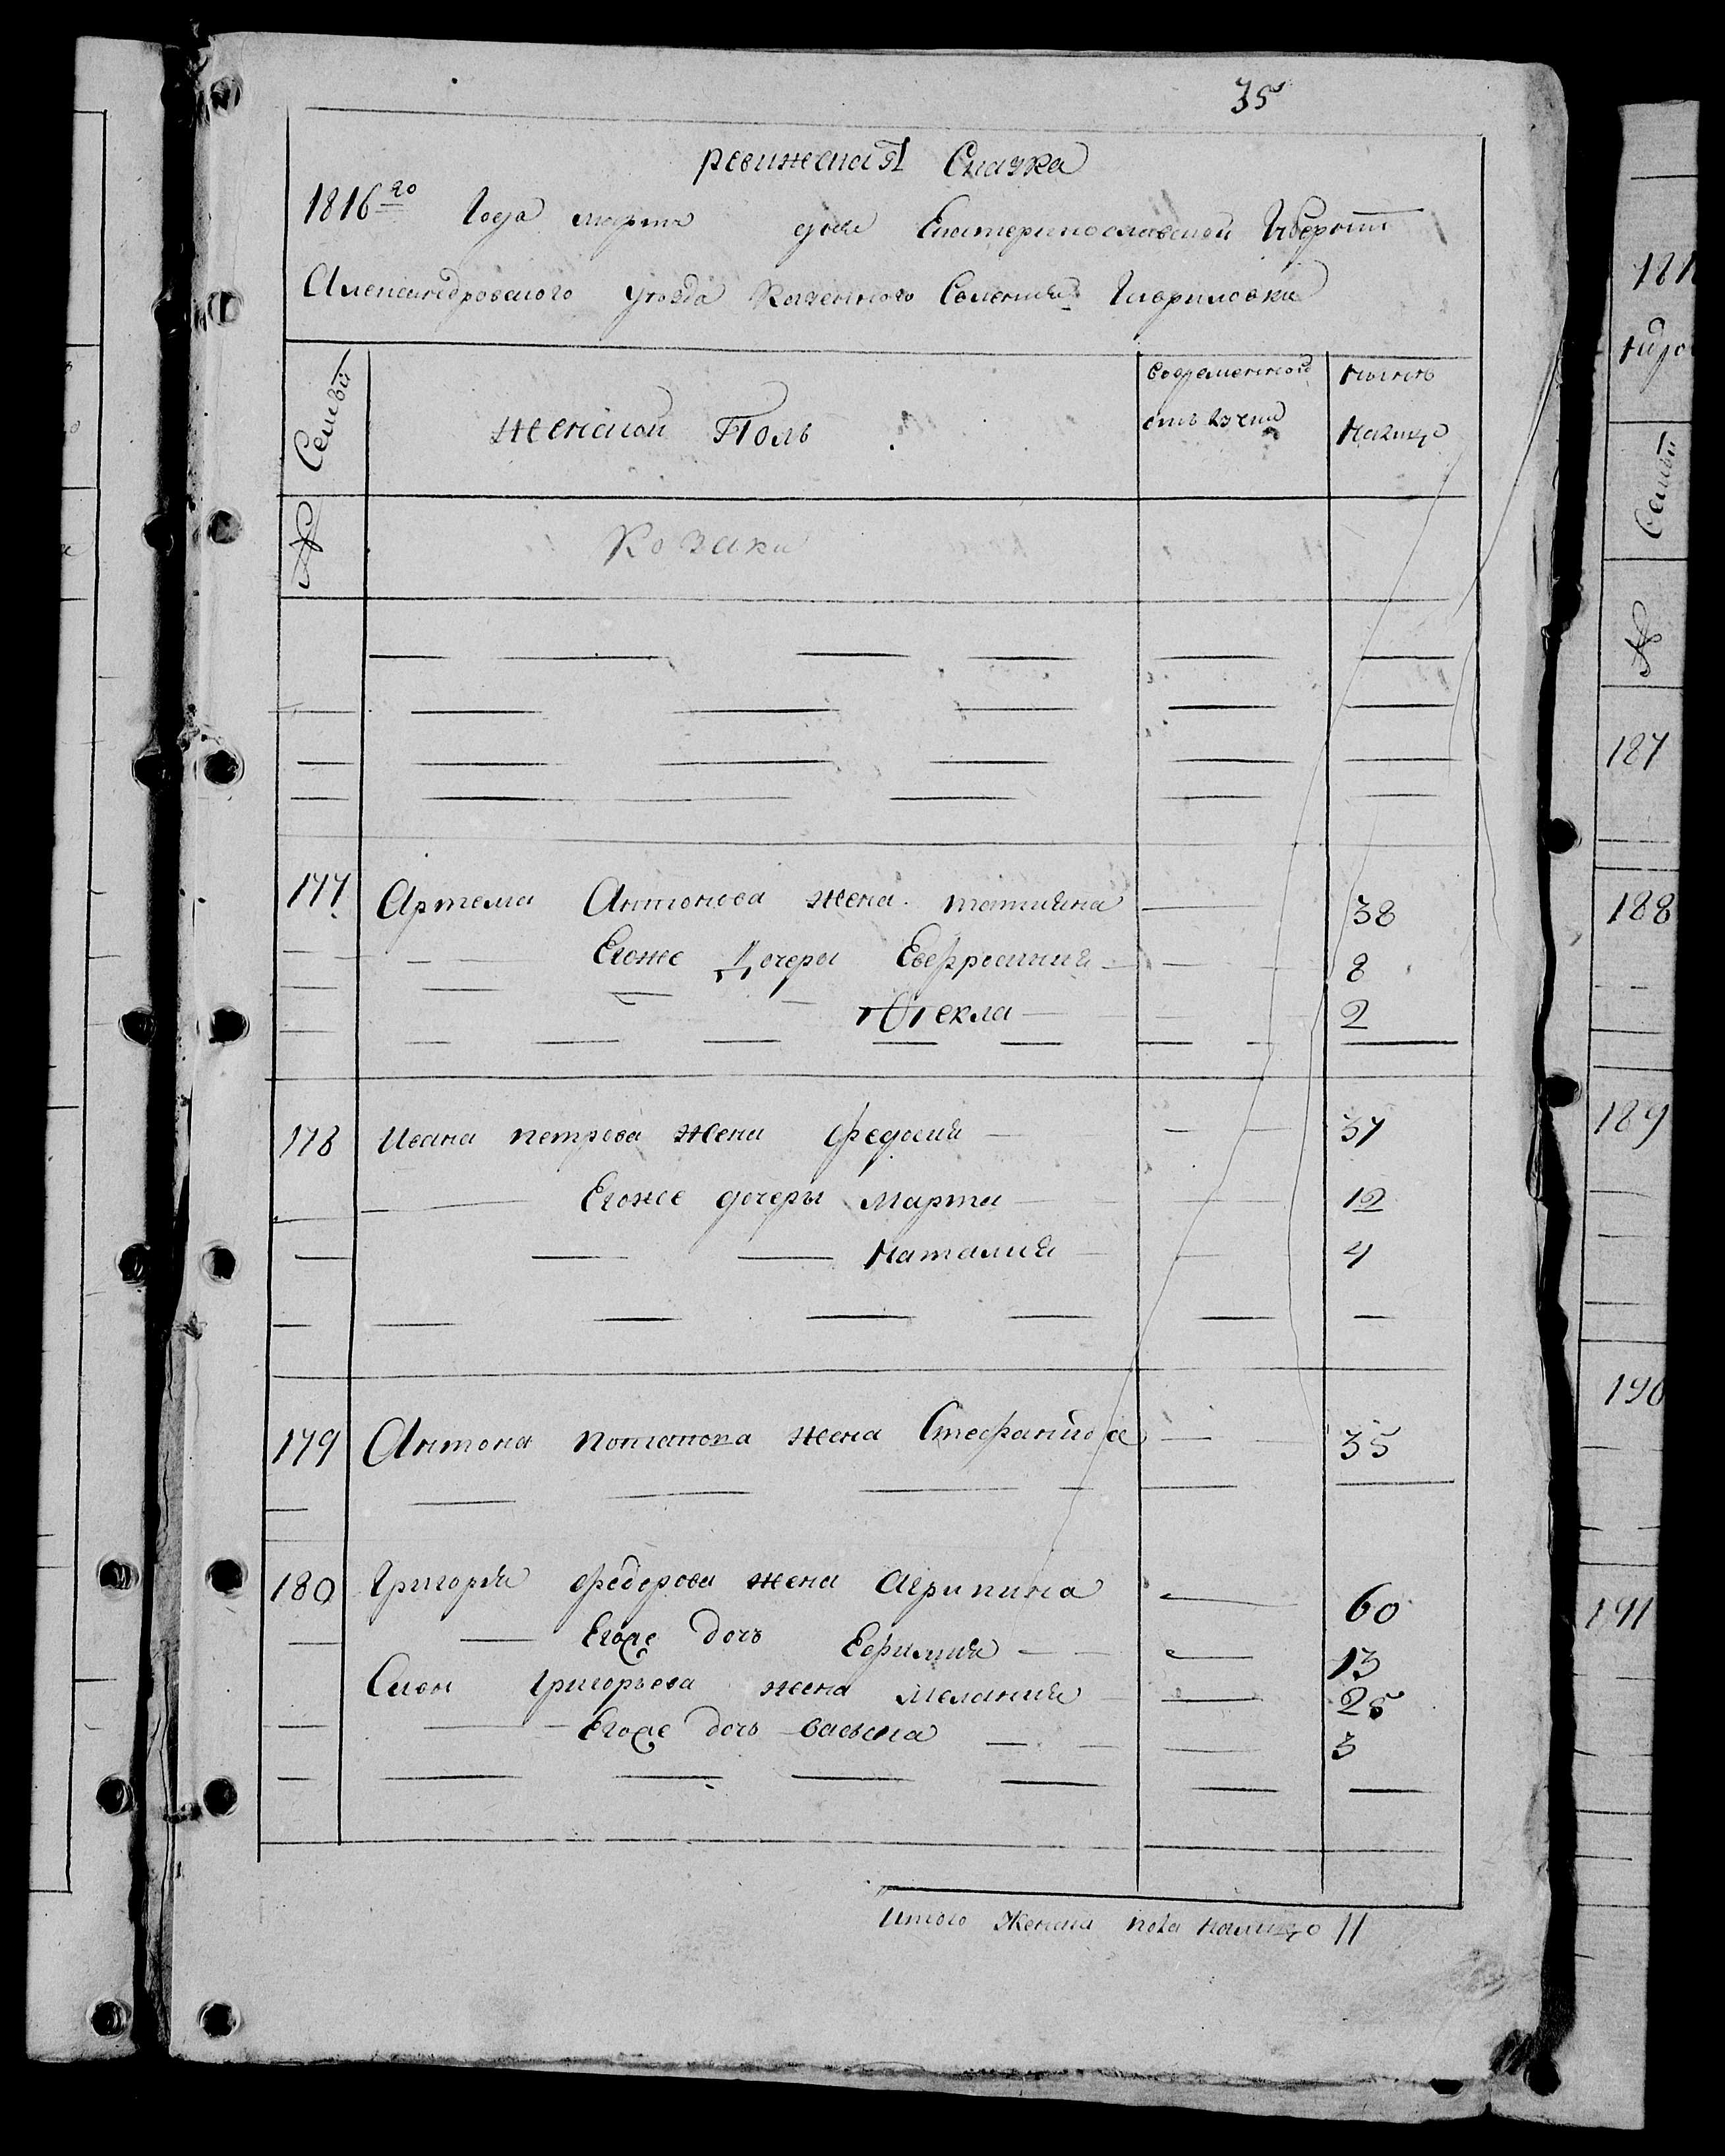 35
ревижская Сказка
1816го Года марта дня Екатеринославской Губернии
Александровского уезда Казенного Селения Гавриловки
Семьи женской Поль Вовременной нынѣ
отлучки налицо
№ Козаки
177 Артема Антонова жена татияна 38
Егоже Дочеры Евфросиния 8
Фекла 2
178 Ивана петрова жена федосия 37
Егоже дочеры Марта 12
Наталия 4
179 Антона потапова жена Стефанида 35
180 Григория федорова жена Агрипина 60
Егоже дочь Ефимия 13
Григорьева жена Мелания 25
Егоже дочь 3
Итого Женска пола налицо 11
181
Семьи
№
187
188
189
190
191